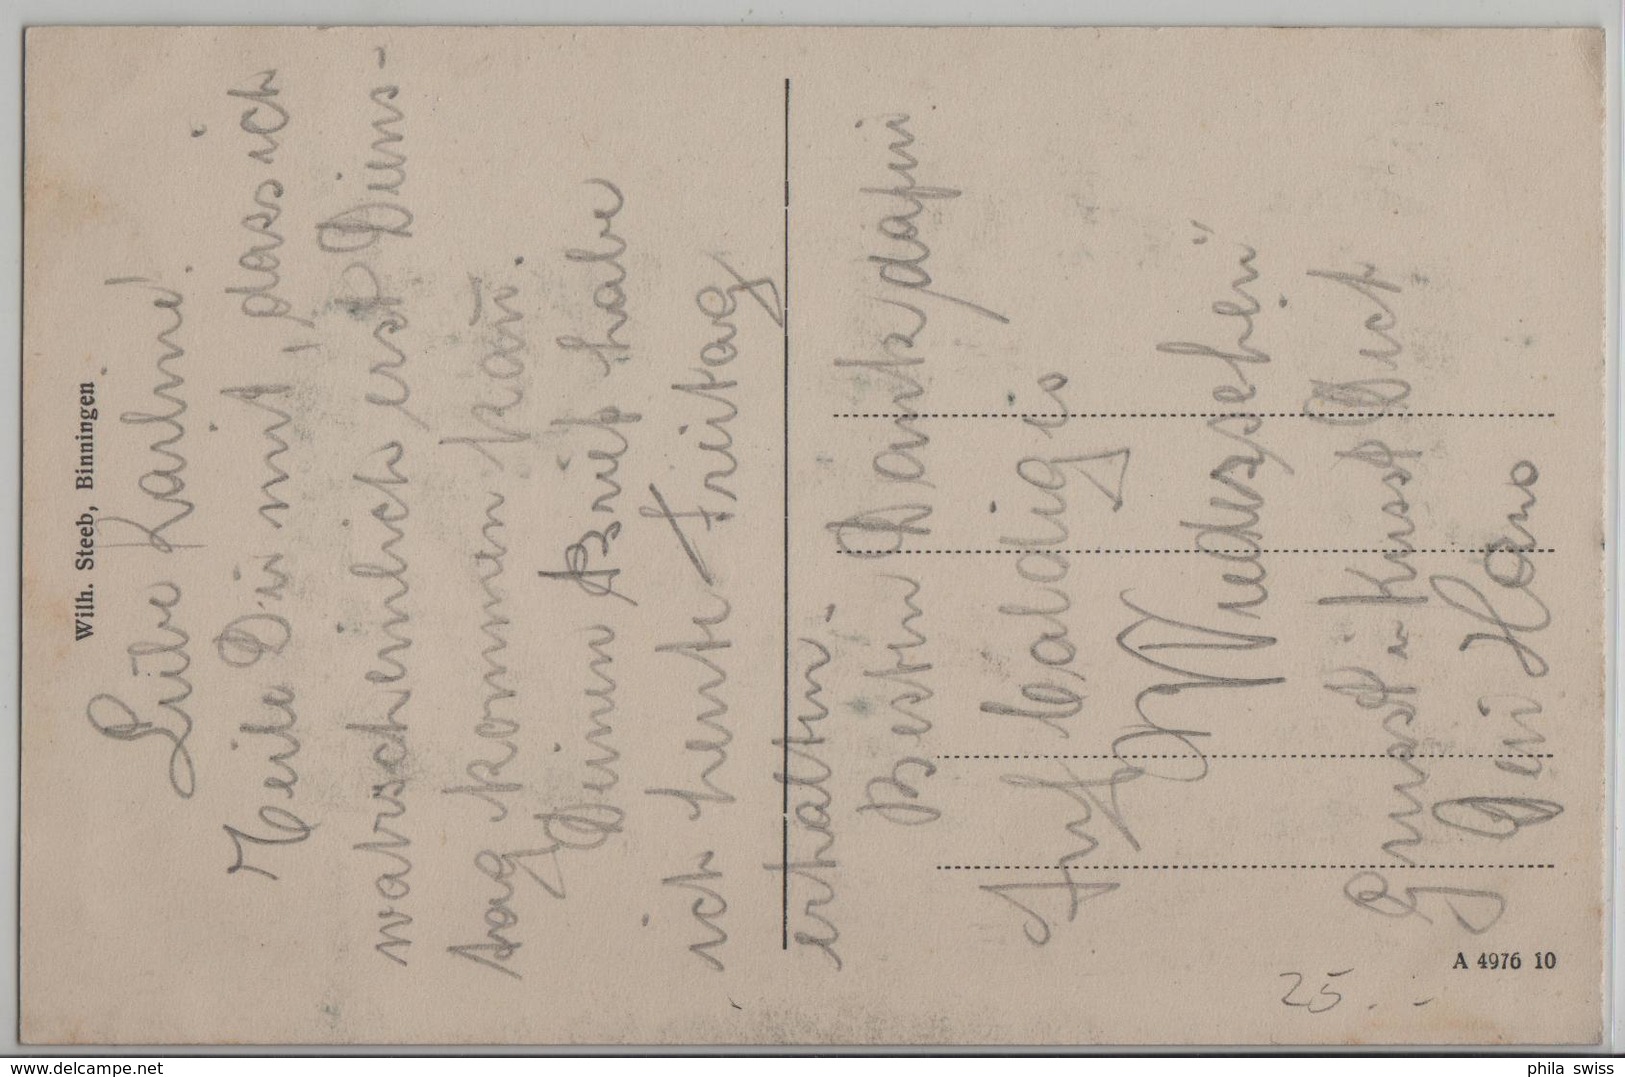 Wilh. Steeb, Binningen
Liebe Karline!
Teile Dir mit, dass ich
warscheinlich erst Diens-
tag kommen kan̄.
Deinen Brief habe
ich heute Freitag
erhalten.
Besten Dank dafür
Auf baldiges
Wiedersehen
Gruss u. Kuss
Dein Hans
A 4976 10
25.-
www.delcampe.net
phila swiss